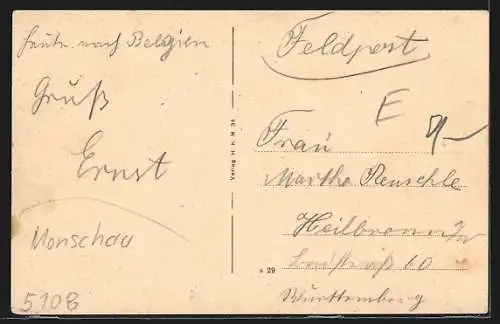 heute nach Belgien
Gruß
Ernst
Monschau
5108
Verlag H. H. M. 24
Feldpost
E
Frau
Martha Renschle
Heilbronn
60
Württemberg
a 29